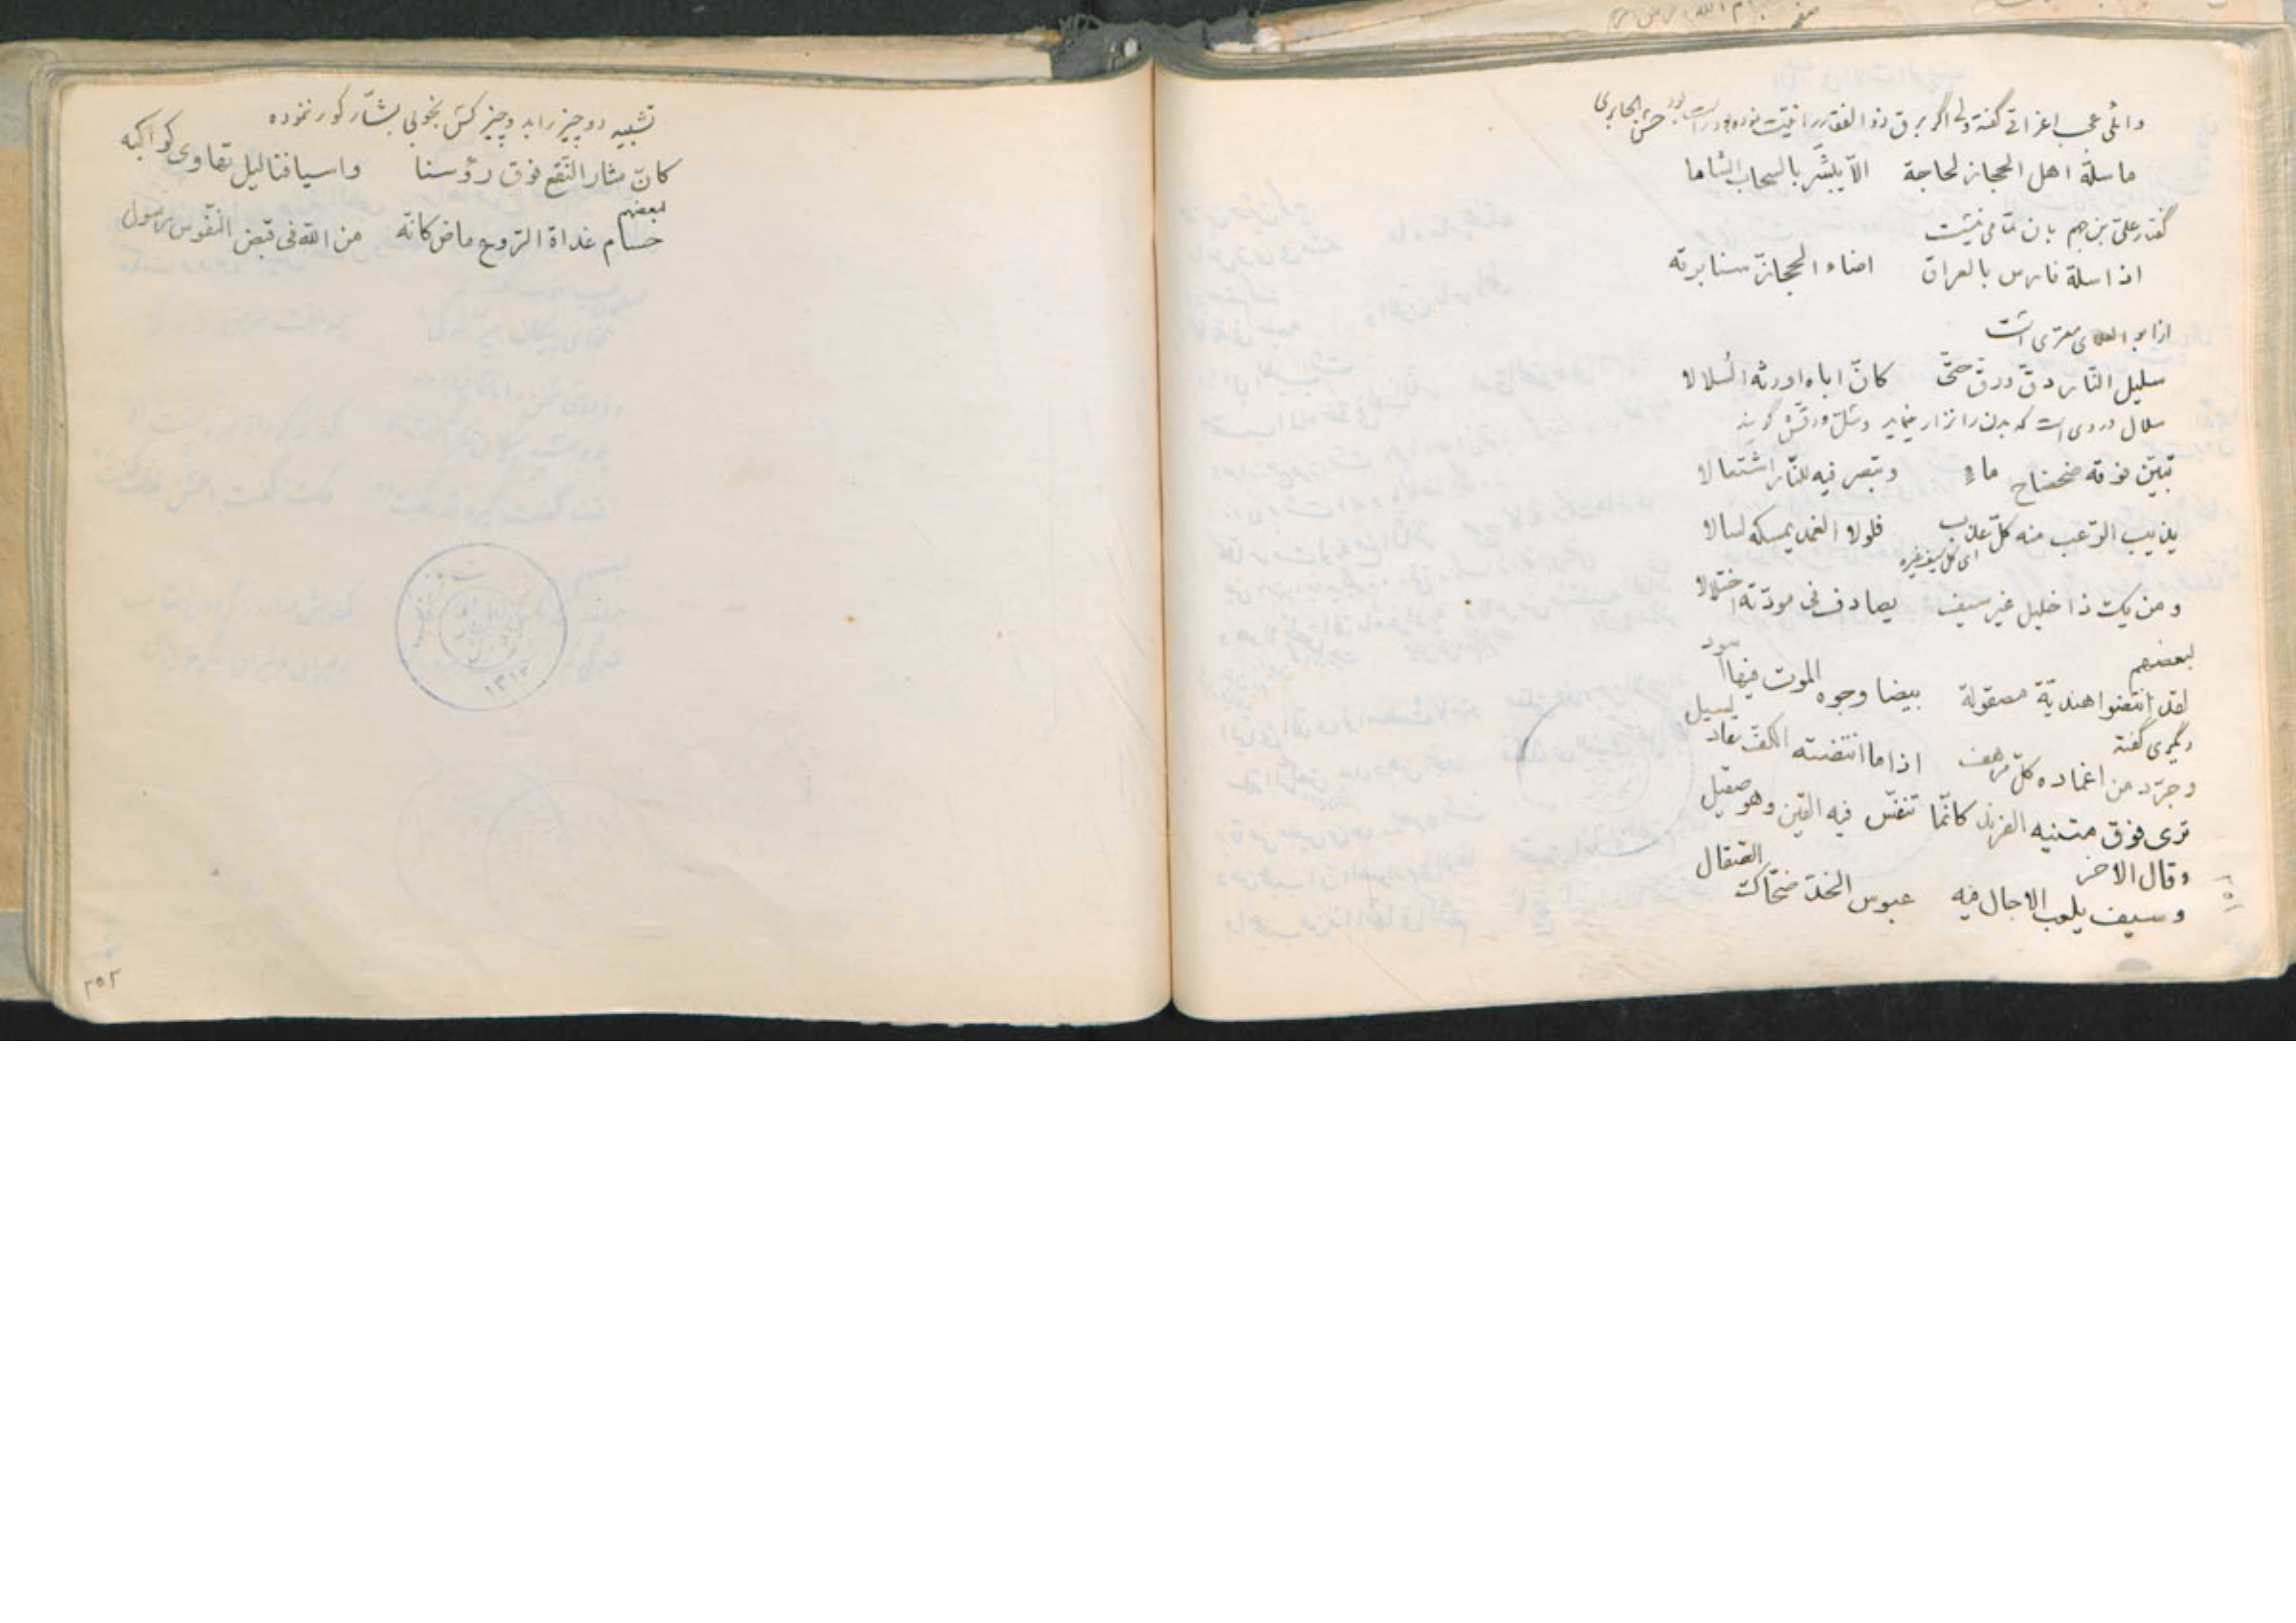 وائلی عجب اغراقی گفته ولی اگر برق ذوالفقار را نیت نموده بود راست بود حسن الجابری
ما سلّه اهل الحجاز لحاجة الّا یبشّر بالسحاب الشاما
گفتار علیّ بن جهم بان تمامی نیست
اذا سلّه فارس بالعراق اضاء الحجاز سنا برقه
از ابو العلای معری است
سلیل النّار دقّ ورقّ حتّی کانّ اباه اورثه السّلالا
سلال دردی است که بدن را نزار نماید وسلّ ودقّش گویند
تبیّن فوقه ضحضاح ماءٍ وتبصر فیه للنّار اشتعالا
یذیب الرّعب منه کلّ عضب فلولا الغمد یمسکه لسالا
ای کلّ سیف غیره
ومن یک ذا خلیل غیر سیف یصادف فی مودّته اختلالا
لبعضهم
لقد انتضوا هندیّة مصقولة بیضا وجوه الموت فیها سود
دیگری گفته
وجرّد من اغماده کلّ مرهف اذا ما انتضته الکفّ کاد یسیل
تری فوق متنیه الفرند کانّما تنفّس فیه القین وهو صقیل
وقال الاخر
وسیف یلعب الاجال فیه عبوس الحدّ ضحّاک الصّقال
۲۵۱
تشبیه دو چیز را به دو چیز کس بخوبی بشّار کور ننموده
کانّ مثار النّقع فوق رؤسنا واسیافنا لیل تهاوی کواکبه
لبعضهم
حسام غداة الرّوع ماض کانّه من الله فی قبض النّفوس رسول
۱۳۱۲
۲۵۲